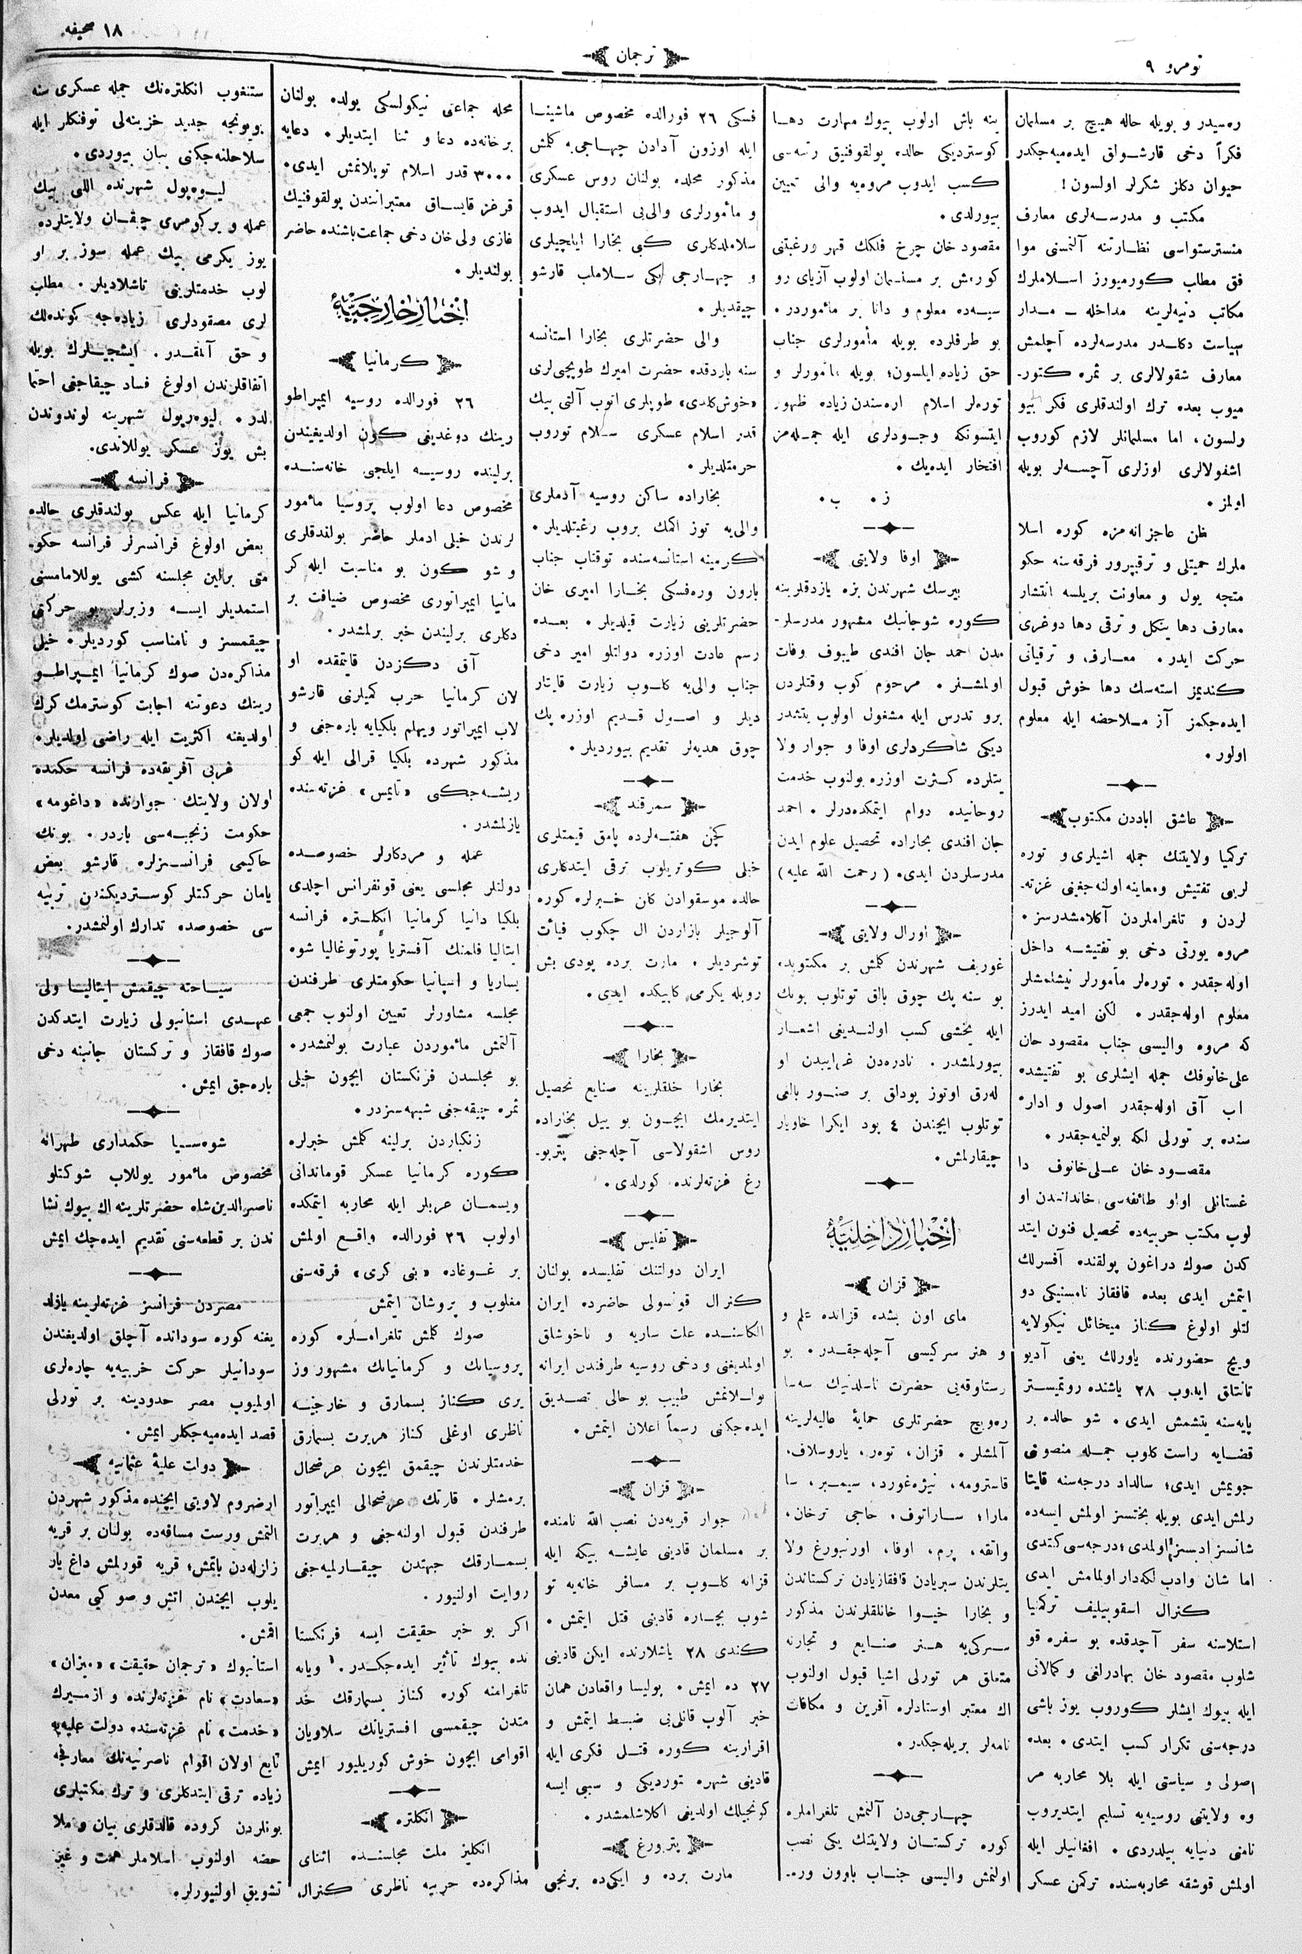 نومرو ٩
ترجمان
١٨ صحیفه
ره‌سیدر و بویله حاله هیچ بر مسلمان
فکراً دخی قارشولق ایده‌میه‌جکدر
حیوان دکلز شکرلر اولسون!
مکتب و مدرسه‌لری معارف
منسترستواسی نظارتنه آلنمسنی موا
فق مطلب کورمیورز اسلاملرك
مکاتب دنیه‌لرینه مداخله مدار
سیاست دکلدر مدرسه‌لرده آچلمش
معارف شقولالری بر ثمره کتور-
میوب بعده ترك اولندقلری فکر بیو
رلسون، اما مسلمانلر لازم کوروب
اشقولالری اوزلری آچسه‌لر بویله
اولمز.
ظن عاجزانه‌مزه کوره اسلا
ملرك حمیتلی و ترقیپرور فرقه‌سنه حکو
متجه یول و معاونت بریلسه انتشار
معارف دها یتکل و ترقی دها دوغری
حرکت ایدر. معارف و ترقیاتی
کندیمز استه‌سك دها خوش قبول
ایده‌جکمز آز ملاحضه ایله معلوم
اولور.
عاشق اباددن مکتوب
ترکمیا ولایتنك جمله اشیلری و توره
لربی تفتیش و معاینه اولنه‌جغینی غزته-
لردن و تلغراملردن آکلامشدرسز.
مروه یورتی دخی بو تفتیشه داخل
اوله‌جقدر. توره‌لر مأمورلر نیشلمشلر
معلوم اوله‌جقدر. لکن امید ایدرز
که مروه والیسی جناب مقصود خان
علی‌خانوفك جمله ایشلری بو تفتیشده
اب آق اوله‌جقدر اصول و ادار
سنده بر تورلی لکه بولنمیه‌جقدر.
مقصود خان علی‌خانوف دا
غستانلی اولو طائفه‌سی خاندانندن او
لوب مکتب حربیه‌ده تحصیل فنون ایتد
کدن صوك دراغون پولقنده آفسرلك
ایتمش ایدی بعده قافقاز نامستنیکی دو
لتلو اولوغ کناز میخائل نیکولایه
ویچ حضورنده یاورلك یعنی آدیو
تانتلق ایدوب ٢٨ یاشنده روتمیستر
پایه‌سنه یتشمش ایدی. شو حالده بر
قضایه راست کلوب جمله منصوفی
جویمش ایدی؛ سالداد درجه‌سنه قایتا
رلمش ایدی بویله بختسز اولمش ایسه‌ده
شانسز ادبسز اولمدی؛ درجه‌سی کتدی
اما شان وادب لکه‌دار اولمامش ایدی
کنرال اسقوبیلیف ترکمیا
استلاسنه سفر آچدقده بو سفره قو
شلوب مقصود خان بهادرلغی و کمالاتی
ایله بیوك ایشلر کوروب یوز باشی
درجه‌سنی تکرار کسب ایتدی. بعده
اصولی و سیاستی ایله بلا محاربه مر
وه ولایتنی روسیه‌یه تسلیم ایتدیروب
نامنی دنیایه بیلدردی. افغانیلر ایله
اولمش قوشقه محاربه‌سنده ترکمن عسکر
ینه باش ارلوب بیوك مهارت دها
کوستردیکی حالده پولقوفنیق رتبه‌سی
کسب ایدوب مروه‌یه والی تعیین
بیورلدی.
مقصود خان چرخ فلکك قهر و رغبتنی
کورمش بر مسلمان اولوب آزیای رو
سیه‌ده معلوم و دانا بر مأموردر.
بو طرفلرده بویله مأمورلری جناب
حق زیاده ایلسون؛ بویله مأمورلر و
توره‌لر اسلام اره‌سندن زیاده ظهور
ایتسونکه وجودلری ایله جمله‌مز
افتخار ایده‌یك.
ز. ب.
اوفا ولایتی
بیرسك شهرندن بزه یازدقلرینه
کوره شوجانیك مشهور مدرسلر-
مدن احمد جان افندی طیبوف وفات
اولمشلر. مرحوم کوب وقتلردن
برو تدرس ایله مشغول اولوب یتشدر
دیکی شاکردلری اوفا و جوار ولا
یتلرده کثرت اوزره بولنوب خدمت
روحانیده دوام ایتمکده‌درلر. احمد
جان افندی بخاراده تحصیل علوم ایدن
مدرسلردن ایدی. (رحمت الله علیه)
اورال ولایتی
غوریف شهرندن کلمش بر مکتوبده
بو سنه پك چوق بالق توتلوب بونك
ایله یخشی کسب اولندیغی اشعار
بیورلمشدر. نادره‌دن غرایبدن او
له‌رق اوتوز پوداق بر صنور بالغی
توتلوب ایچندن ٤ پود ایکرا خاویار
چیقارلمش.
اخبار داخلیه
قزان
مای اون بشده قزانده علم و
و هنر سرکیسی آچله‌جقدر. بو
رستاوقه‌یی حضرت ناسلدنیك سه‌سا
ره‌ویچ حضرتلری حمایهٔ عالیه‌لرینه
آلمشلر. قزان، توه‌ر، یاروسلاف،
قاسترومه، نیژه‌غورد، سیمبر، سا
مارا؛ ساراتوف، حاجی ترخان،
واتقه، پرم، اوفا، اورنبورغ ولا
یتلرندن سبریادن قافقازیادن ترکستاندن
و بخارا خیوا خانلقلرندن مذکور
سرکی‌یه هنر صنایع و تجارته
متعلق هر تورلی اشیا قبول اولنوب
اك معتبر اوستادلره آفرین و مکافات
نامه‌لر بریله‌جکدر.
چهارجی‌دن آلنمش تلغراملره
کوره ترکستان ولایتنك یکی نصب
اولنمش والیسی جناب بارون وره-
فسکی ٢٦ فورالده مخصوص ماشینا
ایله اوزون آدادن چهارجی‌یه کلمش
مذکور محلده بولنان روس عسکری
و مأمورلری والی‌یی استقبال ایدوب
سلاملدکلری کبی بخارا ایلچیلری
و چهارجی بکی سلاملب قارشو
چیقدیلر.
والی حضرتلری بخارا استانسه
سنه باردقده حضرت امیرك طوپچی‌لری
«خوش‌کلدی» طوپلری اتوب آلتی بیك
قدر اسلام عسکری سلام توروب
حرمتلدیلر.
بخاراده ساکن روسیه آدملری
والی‌یه توز اکمك بروب رغبتلدیلر.
کرمینه استانسه‌سنده توقتاب جناب
بارون وره‌فسکی بخارا امیری خان
حضرتلرینی زیارت قیلدیلر. بعده
رسم عادت اوزره دولتلو امیر دخی
جناب والی‌یه کلوب زیارت قایتار
دیلر و اصول قدیم اوزره پك
چوق هدیه‌لر تقدیم بیوردیلر.
سمرقند
کچن هفته‌لرده پامق قیمتلری
خیلی کوتریلوب ترقی ایتدکلری
حالده موسقوادن کلن خبرلره کوره
آلوجیلر بازاردن ال چکوب فیأت
توشردیلر. مارت برده پودی بش
روبله یکرمی کاپیکده ایدی.
بخارا
بخارا خلقلرینه صنایع تحصیل
ایتدیرمك ایچون بو ییل بخاراده
روس اشقولاسی آچله‌جغی پتربو-
رغ غزته‌لرنده کورلدی.
تفلیس
ایران دولتنك تفلیسده بولنان
کنرال قونسولی حاضرده ایران
الکاسنده علت ساریه و ناخوشلق
اولمدیغنی و دخی روسیه طرفندن ایرانه
یوللانمش طبیب بو حالی تصدیق
ایده‌جکنی رسماً اعلان ایتمش.
قزان
جوار قریه‌دن نصب الله نامنده
بر مسلمان قادینی عایشه بیکه ایله
قزانه کلوب بر مسافر خانه‌یه تو
شوب بیچاره قادینی قتل ایتمش.
کندی ٢٨ یاشلارنده ایکن قادینی
٢٧ ده ایمش. پولیسا واقعادن همان
خبر آلوب قاتلی‌یی ضبط ایتمش و
اقرارینه کوره قتل فکری ایله
قادینی شهره توردیکی و سببی ایسه
کونجیلك اولدیغی اکلاشلمشدر.
پترورغ
مارت برده و ایکی‌ده برنجی
محله جماعتی نیکولسکی یولده بولنان
بر خانه‌ده دعا و ثنا ایتدیلر. دعایه
٣٠٠٠ قدر اسلام توپلانمش ایدی.
قرغز قایساق معتبراتندن پولقوفنیك
غازی ولی خان دخی جماعت باشنده حاضر
بولندیلر.
اخبار خارجیه
کرمانیا
٢٦ فورالده روسیه ایمپراطو
رینك دوغدیغی کون اولدیغیندن
برلینده روسیه ایلچی خانه‌سنده
مخصوص دعا اولوب پروسیا مأمور
لرندن خیلی ادملر حاضر بولندقلری
و شو کون بو مناسبت ایله کر
مانیا ایمپراتوری مخصوص ضیافت بر
دکلری برلیندن خبر برلمشدر.
آق دکزدن قایتقده او
لان کرمانیا حرب کمیلرنی قارشو
لاب ایمپراتور ویهلم بلکیایه باره‌جغی و
مذکور شهرده بلکیا قرالی ایله کو
ریشه‌جکی «تایمس» غزته‌سنده
یازلمشدر.
عمله و مردکارلر خصوصده
دولتلر مجلسی یعنی قونفرانس اچلدی
بلکیا دانیا کرمانیا انکلتره فرانسه
ایتالیا فلمنك آفستریا پورتوغالیا شوه
یساریا و اسپانیا حکومتلری طرفندن
مجلسه مشاورلر تعیین اولنوب جمعی
آلتمش مأموردن عبارت بولنمشدر.
بو مجلسدن فرنکستان ایچون خیلی
ثمره چیقه‌جغی شبهه‌سزدر.
زنکباردن برلینه کلمش خبرلره
کوره کرمانیا عسکر قوماندانی
ویسمان عربلر ایله محاربه ایتمکده
اولوب ٢٦ فورالده واقع اولمش
بر غوغاده «بنی کری» فرقه‌سنی
مغلوب و پروشان ایتمش
صوك کلمش تلغراملره کوره
پروسیانك و کرمانیانك مشهور وز
یری کناز بسمارق و خارجیه
ناظری اوغلی کناز هربرت بسمارق
خدمتلرندن چیقمق ایچون عرضحال
برمشلر. قارتك عرضحالی ایمپراتور
طرفندن قبول اولنه‌جغی و هربرت
بسمارقك جهتدن چیقارلمیه‌جغی
روایت اولنیور.
اکر بو خبر حقیقت ایسه فرنکستا
نده بیوك تأثیر ایده‌جکدر. ویانه
تلغرامنه کوره کناز بسمارقك خد
متدن چیقمسی افستریانك سلاویان
اقوامی ایچون خوش کوریلیور ایمش
انکلتره
انکلیز ملت مجلسنده اثنای
مذاکره‌ده حربیه ناظری کنرال
ستنغوب انکلتره‌نك جمله عسکری سنه
بویونجه جدید خزینه‌لی توفنکلر ایله
سلاحلنه‌جکنی بیان بیوردی.
لیوه‌پول شهرنده اللی بیك
عمله و بر کومری چقان ولایتلرده
یوز یکرمی بیك عمله سوز بر او
لوب خدمتلرینی تاشلادیلر. مطلب
لری مصقودلری زیاده‌جه کونده‌لك
و حق آلمقدر. ایشجیلرك بویله
اتفاقلرندن اولوغ فساد چیقاجغی احتما
لدر. لیوه‌رپول شهرینه لوندوندن
بش یوز عسکر یوللاندی.
فرانسه
کرمانیا ایله عکس بولندقلری حالده
بعض اولوغ فرانسزلر فرانسه حکو
متی برلین مجلسنه کشی یوللامامسنی
استمدیلر ایسه وزیرلر بو حرکتی
چیقمسز و نامناسب کوردیلر. خیلی
مذاکره‌دن صوك کرمانیا ایمپراطو
رینك دعوتنه اجابت کوسترمك کرك
اولدیغنه اکثریت ایله راضی اولدیلر.
غربی آفریقه‌ده فرانسه حکمنده
اولان ولایتك جوارنده «داغومه»
حکومت زنجیه‌سی باردر. بونك
حاکیمی فرانسزلره قارشو بعض
یامان حرکتلر کوستردیکندن تربیه
سی خصوصده تدارك اولنمشدر.
سیاحته چیقمش ایتالیا ولی
عهدی استانبولی زیارت ایتدکدن
صوك قافقاز و ترکستان جانبنه دخی
باره‌جق ایمش.
شوه‌سیا حکمداری طهرانه
مخصوص مأمور یوللاب شوکتلو
ناصرالدین‌شاه حضرتلرینه اك بیوك نشا
ندن بر قطعه‌سنی تقدیم ایده‌جك ایمش
مصردن فرانسز غزته‌لرینه یازلد
یغنه کوره سودانده آچلق اولدیغندن
سودانیلر حرکت خربیه‌یه چاره‌لری
اولمیوب مصر حدودینه بر تورلی
قصد ایده‌میه‌جکلر ایمش.
دولت علیهٔ عثمانیه
ارضروم لاویتی ایچنده مذکور شهردن
التمش ورست مسافه‌ده بولنان بر قریه
زلزله‌دن باتمش؛ قریه قورلمش داغ یار
یلوب ایچندن اتش و صو کبی معدن
اقمش.
استانبولك «ترجمان حقیقت» «میزان»
«سعادت» نام غزته‌لرنده و ازمیرك
«خدمت» نام غزته‌سنده دولت علیه‌یه
تابع اولان اقوام ناصرنیه‌نك معارفجه
زیاده ترقی ایتدکلری و ترك مکتبلری
بونلردن کروده قالدقلری بیان و ملا
حضه اولنوب اسلاملر همت و غیر
تشویق اولنیورلر.